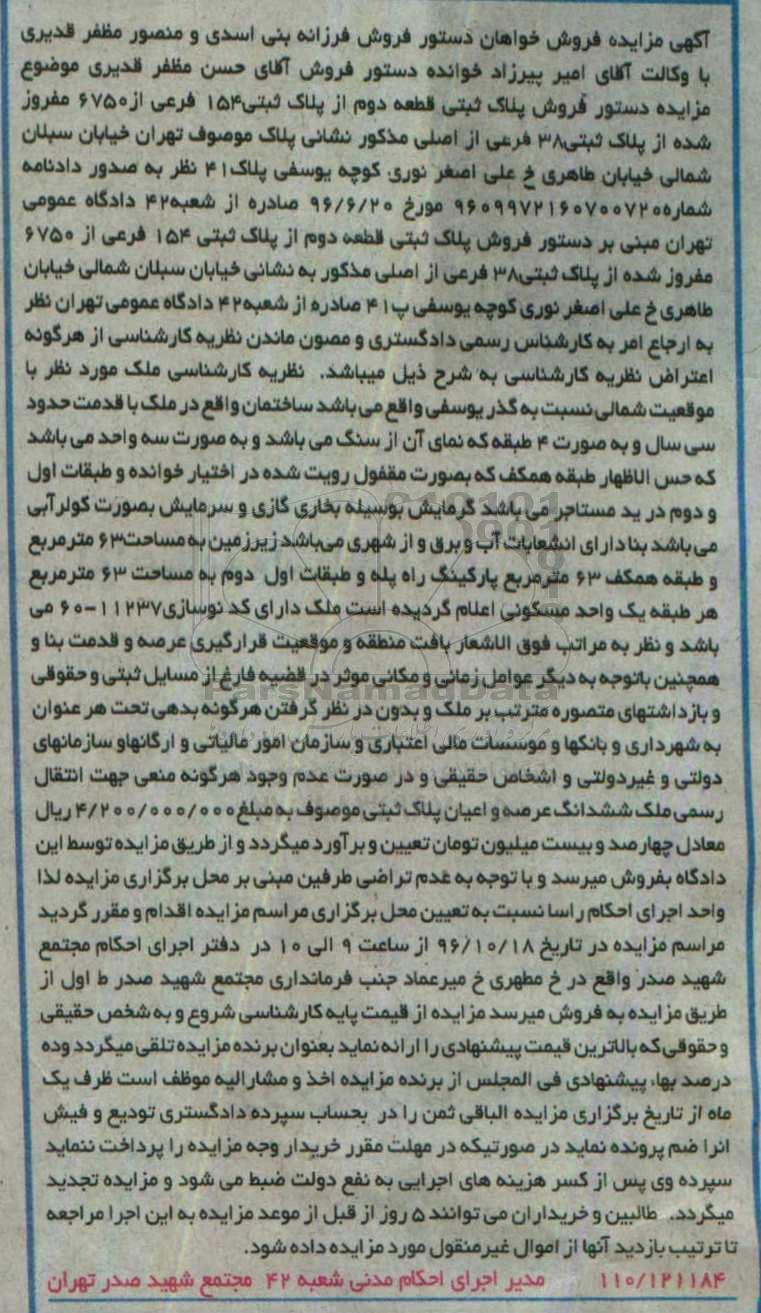 آگهی مزایده فروش خواهان دستور فروش فرزانه بنی اسدی و منصور مظفر قدیری
با وکالت آقای امیر پیرزاد خوانده دستور فروش آقای حسن مظفر قدیری موضوع
مزایده دستور فروش پلاک ثبتی قطعه دوم از پلاک ثبتی۱۵۴ فرعی از۶۷۵۰ مفروز
شده از پلاک ثبتی۳۸ فرعی از اصلی مذکور نشانی پلاک موصوف تهران خیابان سبلان
شمالی خیابان طاهری خ علی اصغر نوری کوچه یوسفی پلاک۴۱ نظر به صدور دادنامه
شماره۹۶۰۹۹۷۲۱۶۰۷۰۰۷۲۰ مورخ ۹۶/۶/۲۰ صادره از شعبه۴۲ دادگاه عمومی
تهران مبنی بر دستور فروش پلاک ثبتی قطعه دوم از پلاک ثبتی ۱۵۴ فرعی از ۶۷۵۰
مفروز شده از پلاک ثبتی۳۸ فرعی از اصلی مذکور به نشانی خیابان سبلان شمالی خیابان
طاهری خ علی اصغر نوری کوچه یوسفی پ۴۱ صادره از شعبه۴۲ دادگاه عمومی تهران نظر
به ارجاع امر به کارشناس رسمی دادگستری و مصون ماندن نظریه کارشناسی از هرگونه
اعتراض نظریه کارشناسی به شرح ذیل میباشد. نظریه کارشناسی ملک مورد نظر با
موقعیت شمالی نسبت به گذر یوسفی واقع می باشد ساختمان واقع در ملک با قدمت حدود
سی سال و به صورت ۴ طبقه که نمای آن از سنگ می باشد و به صورت سه واحد می باشد
که حس الاظهار طبقه همکف که بصورت مقفول رویت شده در اختیار خوانده و طبقات اول
و دوم در ید مستاجر می باشد گرمایش بوسیله بخاری گازی و سرمایش بصورت کولر آبی
می باشد بنا دارای انشعابات آب و برق و از شهری می‌باشد زیرزمین به مساحت۶۳ مترمربع
و طبقه همکف ۶۳ مترمربع پارکینگ راه پله و طبقات اول دوم به مساحت ۶۳ مترمربع
هر طبقه یک واحد مسکونی اعلام گردیده است ملک دارای کد نوسازی۱۱۲۳۷-۶۰ می
باشد و نظر به مراتب فوق الاشعار بافت منطقه و موقعیت قرارگیری عرصه و قدمت بنا و
همچنین باتوجه به دیگر عوامل زمانی و مکانی موثر در قضیه فارغ از مسایل ثبتی و حقوقی
و بازداشتهای متصوره مترتب بر ملک و بدون در نظر گرفتن هرگونه بدهی تحت هر عنوان
به شهرداری و بانکها و موسسات مالی اعتباری و سازمان امور مالیاتی و ارگانهاو سازمانهای
دولتی و غیردولتی و اشخاص حقیقی و در صورت عدم وجود هرگونه منعی جهت انتقال
رسمی ملک ششدانگ عرصه و اعیان پلاک ثبتی موصوف به مبلغ ۴/۲۰۰/۰۰۰/۰۰۰ ریال
معادل چهارصد و بیست میلیون تومان تعیین و برآورد میگردد و از طریق مزایده توسط این
دادگاه بفروش میرسد و با توجه به عدم تراضی طرفین مبنی بر محل برگزاری مزایده لذا
واحد اجرای احکام راسا نسبت به تعیین محل برگزاری مراسم مزایده اقدام و مقرر گردید
مراسم مزایده در تاریخ ۹۶/۱۰/۱۸ از ساعت ۹ الی ۱۰ در دفتر اجرای احکام مجتمع
شهید صدر واقع در خ مطهری خ میرعماد جنب فرمانداری مجتمع شهید صدر ط اول از
طریق مزایده به فروش میرسد مزایده از قیمت پایه کارشناسی شروع و به شخص حقیقی
و حقوقی که بالاترین قیمت پیشنهادی را ارائه نماید بعنوان برنده مزایده تلقی میگردد وده
درصد بهاء پیشنهادی فی المجلس از برنده مزایده اخذ و مشارالیه موظف است ظرف یک
ماه از تاریخ برگزاری مزایده الباقی ثمن را در بحساب سپرده دادگستری تودیع و فیش
انرا ضم پرونده نماید در صورتیکه در مهلت مقرر خریدار وجه مزایده را پرداخت ننماید
سپرده وی پس از کسر هزینه های اجرایی به نفع دولت ضبط می شود و مزایده تجدید
میگردد. طالبین و خریداران می توانند ۵ روز از قبل از موعد مزایده به این اجرا مراجعه
تا ترتیب بازدید آنها از اموال غیرمنقول مورد مزایده داده شود.
۱۱۰/۱۲۱۱۸۴ مدیر اجرای احکام مدنی شعبه ۴۲ مجتمع شهید صدر تهران
ParsNamadData